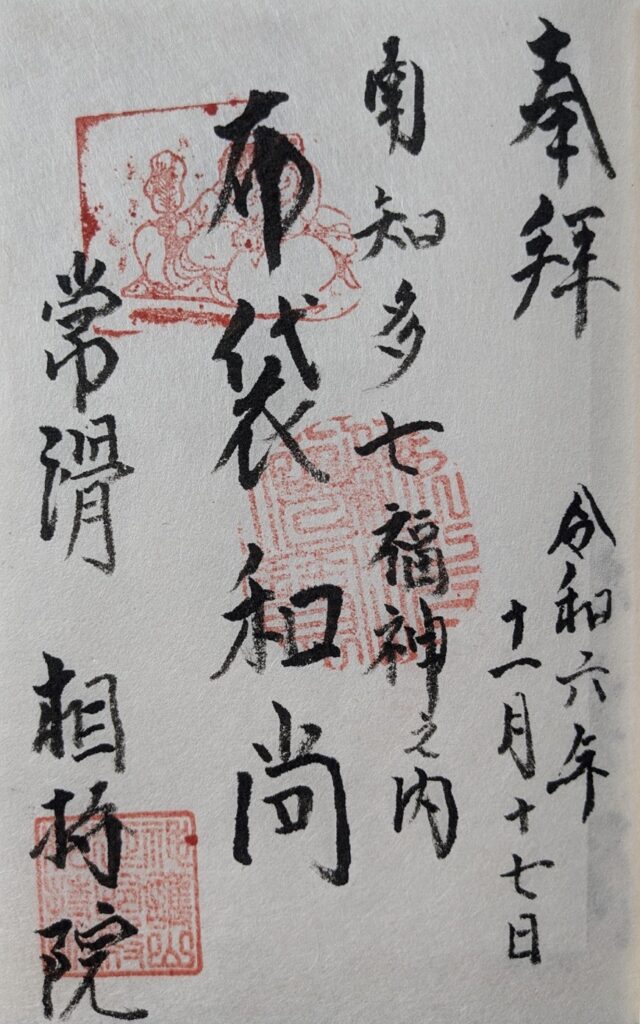 奉拝
令和六年
十一月十七日
南知多七福神之内
布袋和尚
常滑 相持院